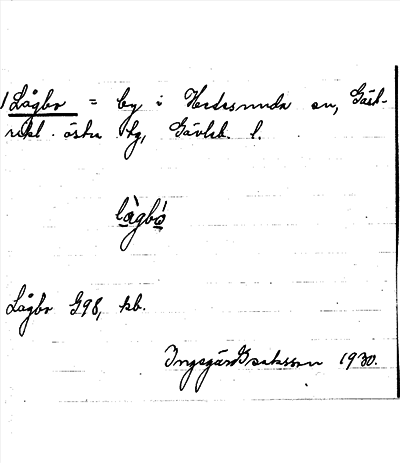 1 Lågbo = by i Hedesunda sn, Gäst-
rikl. östra tg, Gävleb. l.
làgbó
Lågbo G98, kb.
Ingegärd Isaksson 1930.